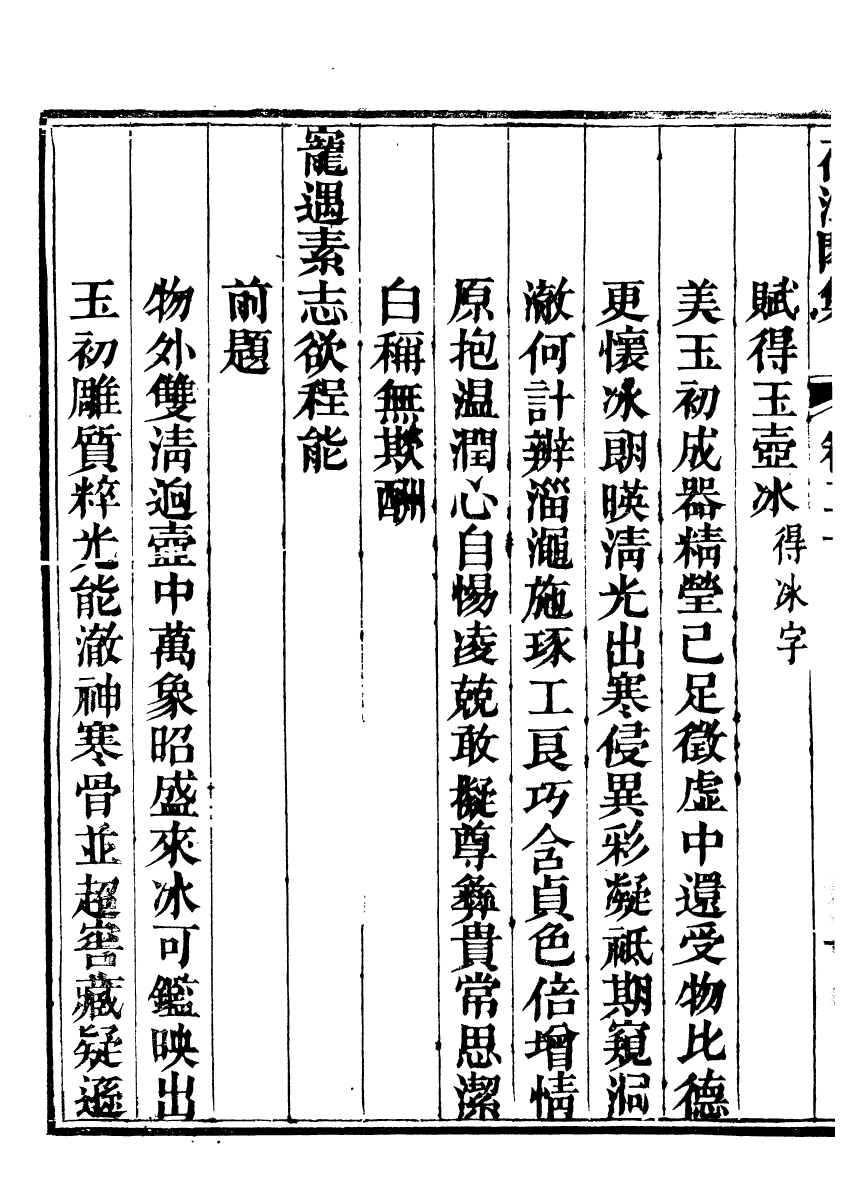 賦得玉壺冰得冰字
美玉初成器精瑩已足徵虛中還受物比德
更懷冰朗暎淸光出寒侵異彩凝祗期窺洞
澈何計辨淄澠施琢工良巧含貞色倍增情
原抱温潤心自惕凌兢敢擬尊彝貴常思潔
白稱無欺酬
寵遇素志欲程能
前題
物外雙淸逈壺中萬象昭盛來冰可鑑映出
玉初雕質粹光能澈神寒骨並超窖藏疑遜